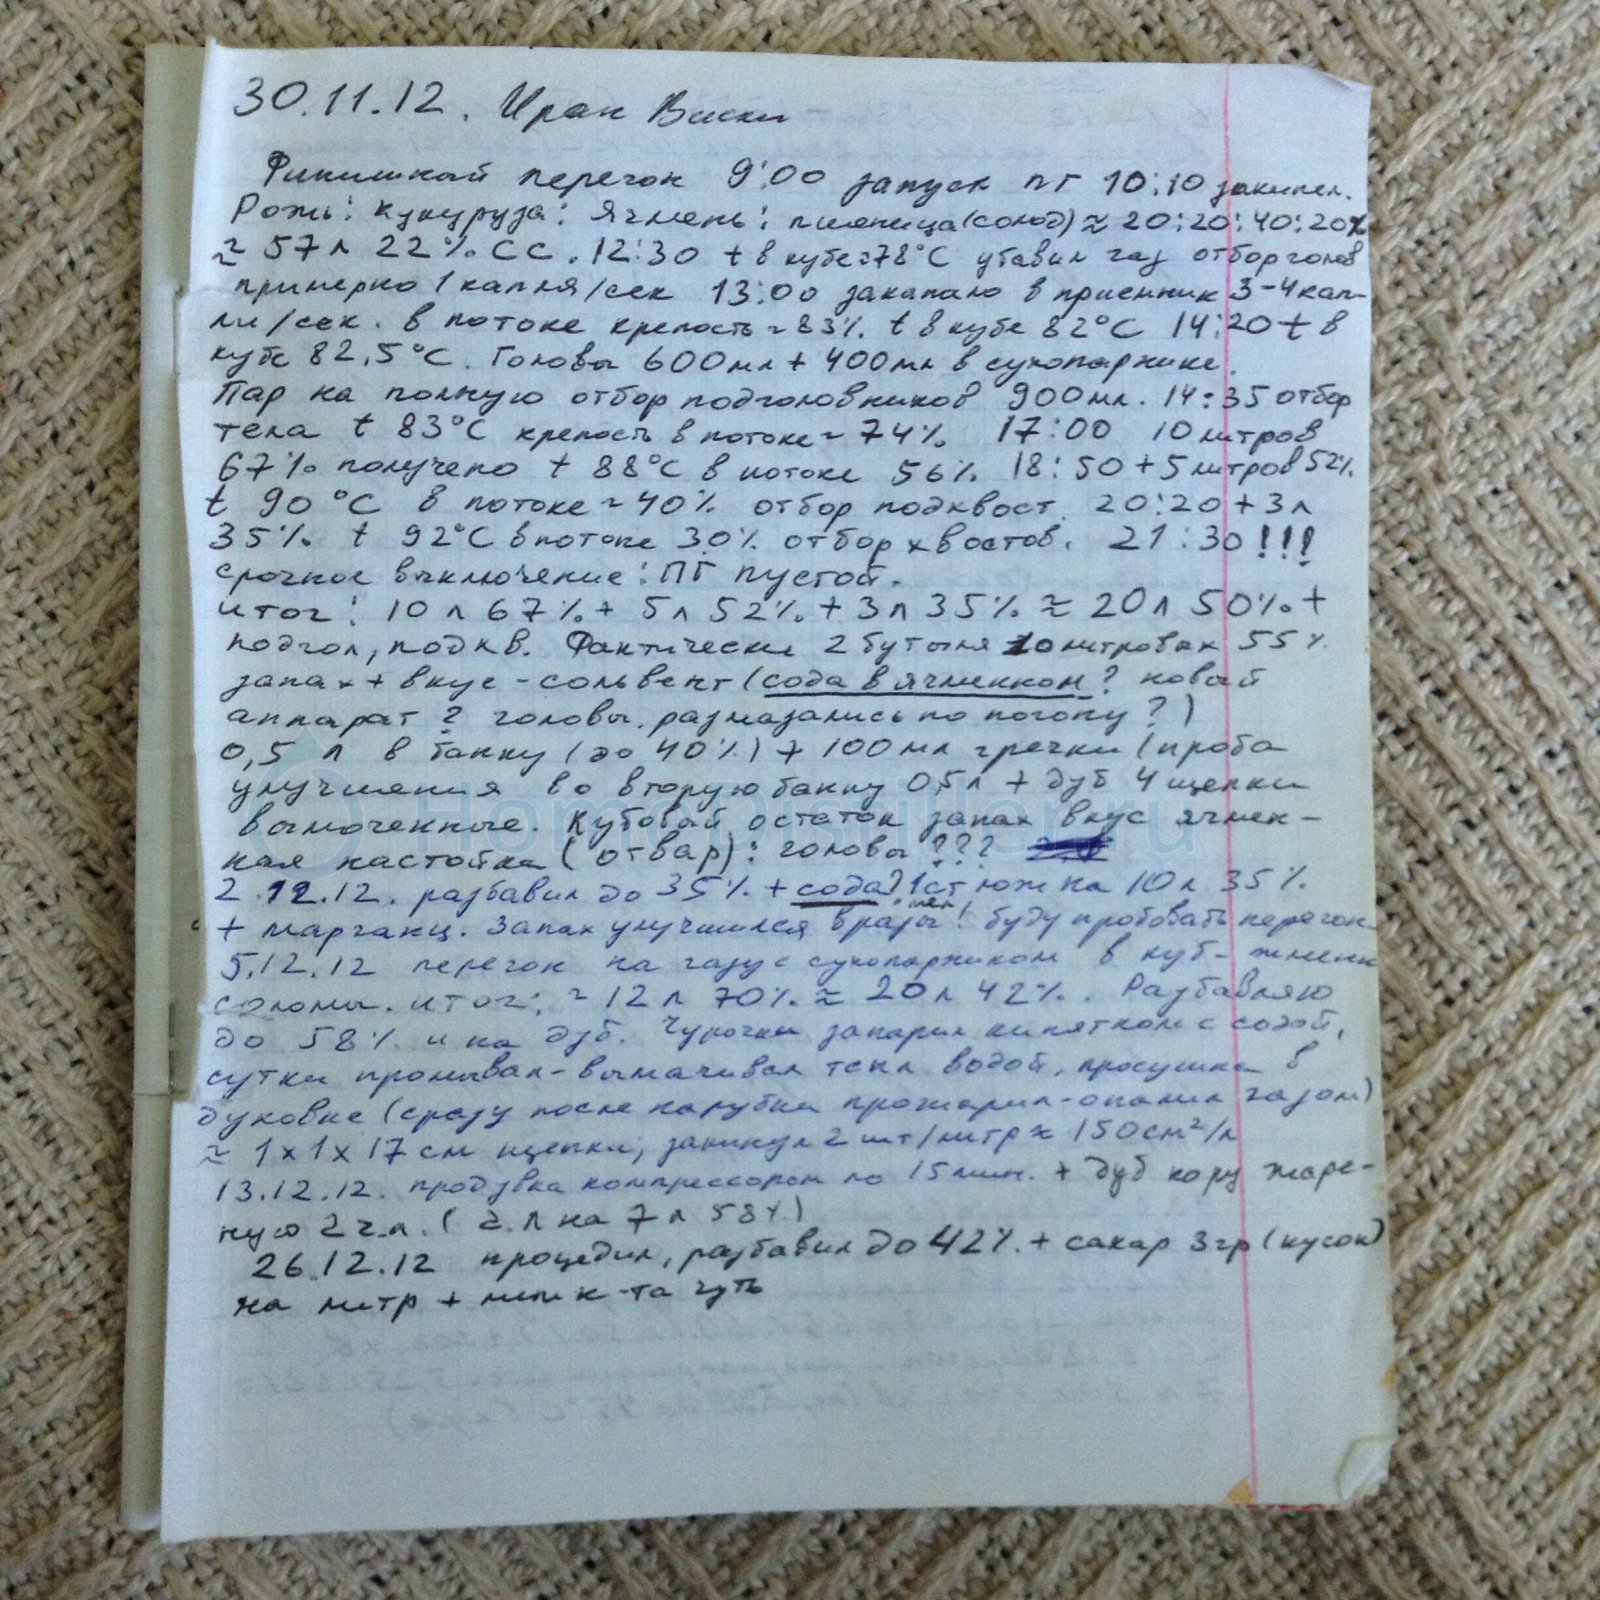 30.11.12. Иран Виски
Финишный перегон 9:00 запуск ПГ 10:10 закипел.
Рожь: кукуруза: ячмень: пшеница (солод) ≈ 20:20:40:20%
≈ 57 л 22% СС. 12:30 t в кубе=78°С убавил газ отбор голов
примерно 1 капля/сек 13:00 закапало в приемник 3-4 кап-
ли/сек. в потоке крепость ~ 83% t в кубе 82°С 14:20 t в
кубе 82,5°С. Головы 600мл + 400мл в сухопарнике.
Пар на полную отбор подголовников 900мл. 14:35 отбор
тела t 83°С крепость в потоке ~ 74% 17:00 10 литров
67% получено t 88°С в потоке 56% 18:50 + 5 литров 52%
t 90°С в потоке ~ 40% отбор подхвост. 20:20 + 3 л
35% t 92°С в потоке 30% отбор хвостов. 21:30!!!
срочное выключение: ПГ пустой.
итог: 10 л 67% + 5 л 52% + 3 л 35% ≈ 20 л 50% +
подгол, подхв. Фактически 2 бутыля 10 литровых 55%
запах + вкус - сольвент (сода в ячменном? новый
аппарат? головы размазались по погону?)
0,5 л в банку (до 40%) + 100мл гречки (проба
улучшения во вторую банку 0,5л + дуб 4 щепки
вымоченные. Кубовый остаток запах вкус ячмен-
ная настойка (отвар): головы???
2.12.12. разбавил до 35% + сода? 1ст на 10 л 35%
+ марганц. Запах улучшился в разы! буду пробовать перегон
5.12.12 перегон на газу с сухопарником в куб - жменя
соломы. итог: ~ 12 л 70% ≈ 20 л 42%. Разбавляю
до 58% и на дуб. Чурочки запарил кипятком с содой,
сутки промывал-вымачивал тепл водой, просушка в
духовке (сразу после нарубки прожарил-опалил газом)
≈ 1х1х17 см щепки, закинул 2 шт/литр ≈ 150см²/л
13.12.12. продувка компрессором по 15 мин. + дуб кору жаре-
ную 2 ч.л. (на 7 л 58%)
26.12.12 процедил, разбавил до 42% + сахар 3гр (кусок)
на литр + лим к-та чуть
HomeDistiller.ru